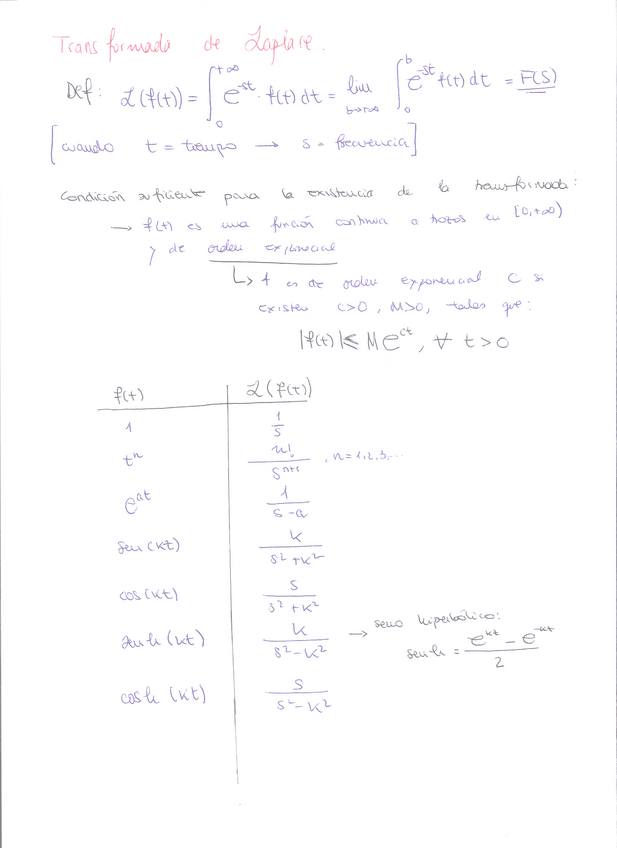 Transformada de Laplace.
Def: ℒ(f(t)) = ∫₀^{+∞} e^{-st} · f(t) dt = lim_{b→+∞} ∫₀^b e^{-st} f(t) dt = F(S)
[cuando t = tiempo → s = frecuencia]
Condición suficiente para la existencia de la transformada:
→ f(t) es una función continua a trozos en [0,+∞)
y de orden exponencial
↳ f es de orden exponencial C si
existen C>0, M>0, tales que:
|f(t)| ≤ M e^{ct}, ∀ t>0
f(t) ℒ(f(t))
1 1/s
tⁿ n!/s^{n+1}, n=1,2,3,...
e^{at} 1/(s-a)
sen(kt) k/(s²+k²)
cos(kt) s/(s²+k²)
senh(kt) k/(s²-k²) → seno hiperbólico:
senh = (e^{kt} - e^{-kt})/2
cosh(kt) s/(s²-k²)